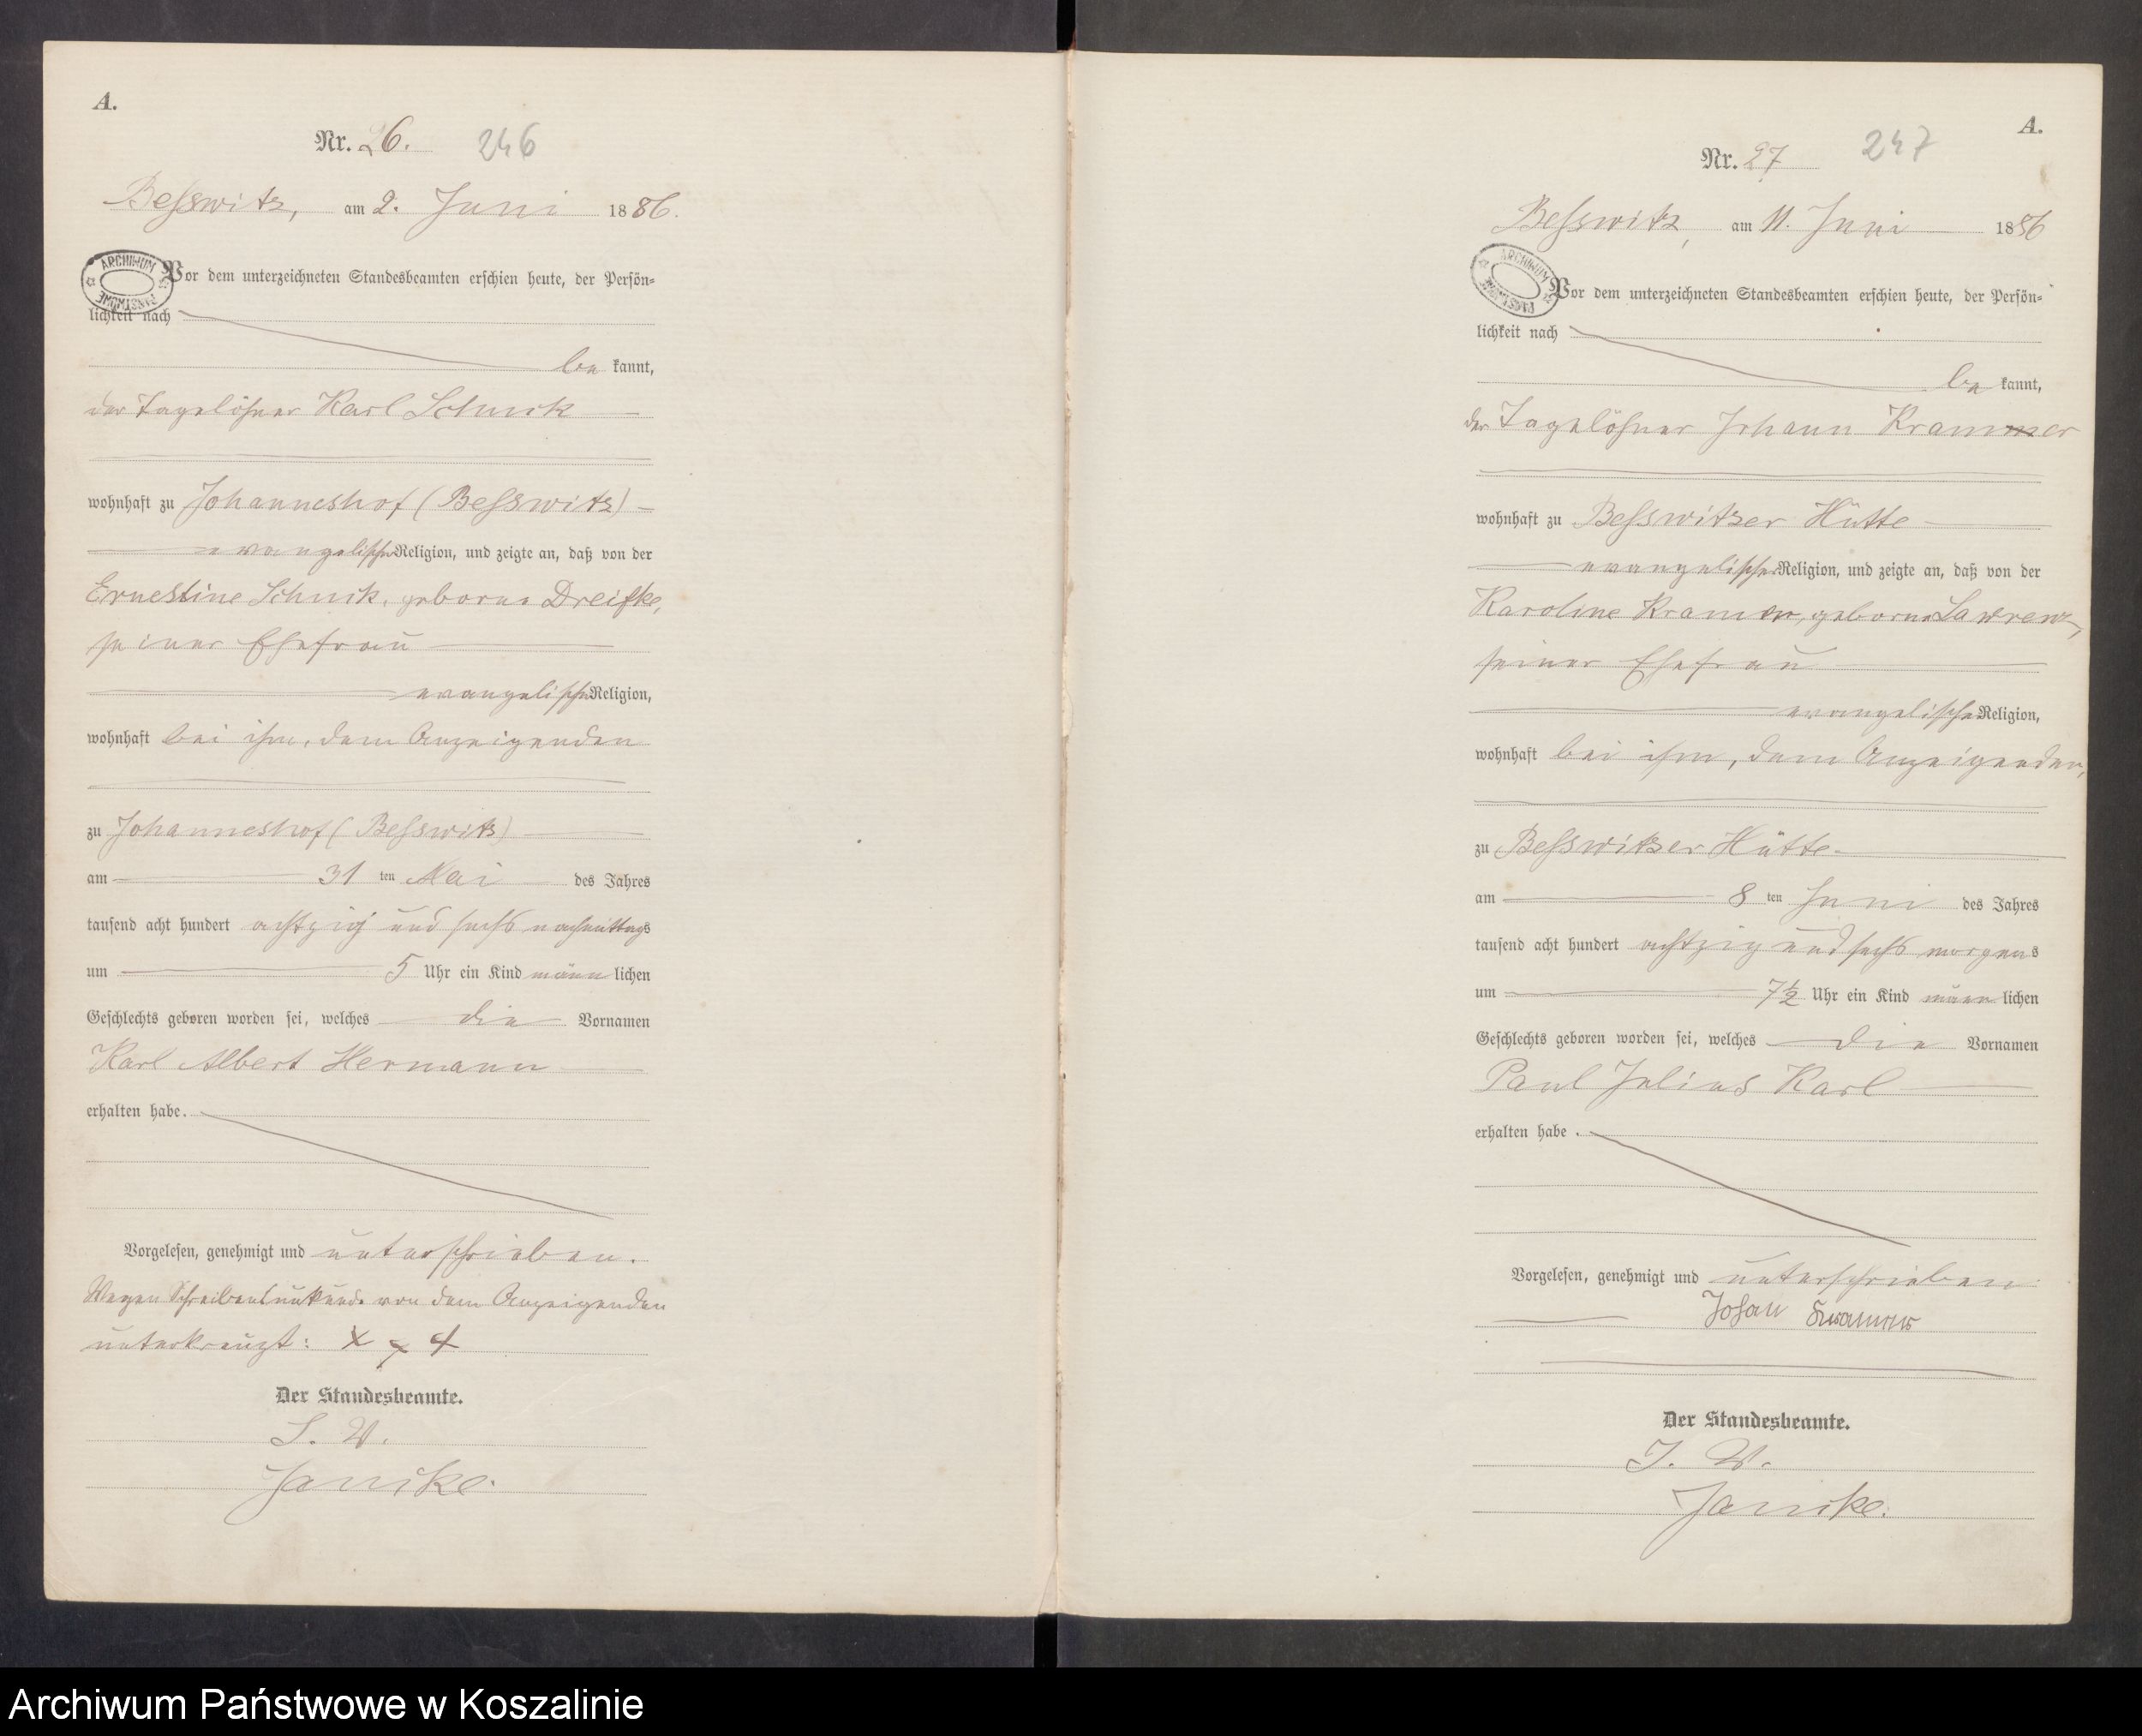 A.
Nr. 26. 246
Besswitz, am 2. Juni 1886.
ARCHIWUM PAŃSTWOWE
Vor dem unterzeichneten Standesbeamten erschien heute, der Persön=
lichkeit nach
be kannt,
der Tagelöhner Karl Schuck
wohnhaft zu Johanneshof (Besswitz)
evangelischer Religion, und zeigte an, daß von der
Ernestine Schuck, geborne Dreifke,
seiner Ehefrau
evangelischer Religion,
wohnhaft bei ihm, dem Anzeigenden
zu Johanneshof (Besswitz)
am 31 ten Mai des Jahres
tausend acht hundert achtzig und sechs nachmittags
um 5 Uhr ein Kind männ lichen
Geschlechts geboren worden sei, welches die Vornamen
Karl Albert Hermann
erhalten habe.
Vorgelesen, genehmigt und unterschrieben.
Wegen Schreibensunkunde von dem Anzeigenden
unterkreuzt: x x x
Der Standesbeamte.
I. V.
Janike.
A.
Nr. 27 247
Besswitz, am 11. Juni 1886
ARCHIWUM PAŃSTWOWE
Vor dem unterzeichneten Standesbeamten erschien heute, der Persön=
lichkeit nach
be kannt,
der Tagelöhner Johann Krammer
wohnhaft zu Besswitzer Hütte
evangelischer Religion, und zeigte an, daß von der
Karoline Kramer, geborne Lawrenz,
seiner Ehefrau
evangelischer Religion,
wohnhaft bei ihm, dem Anzeigenden,
zu Besswitzer Hütte
am 8 ten Juni des Jahres
tausend acht hundert achtzig und sechs morgens
um 7½ Uhr ein Kind männ lichen
Geschlechts geboren worden sei, welches die Vornamen
Paul Julius Karl
erhalten habe.
Vorgelesen, genehmigt und unterschrieben
Johan
Der Standesbeamte.
I. V.
Janike.
Archiwum Państwowe w Koszalinie